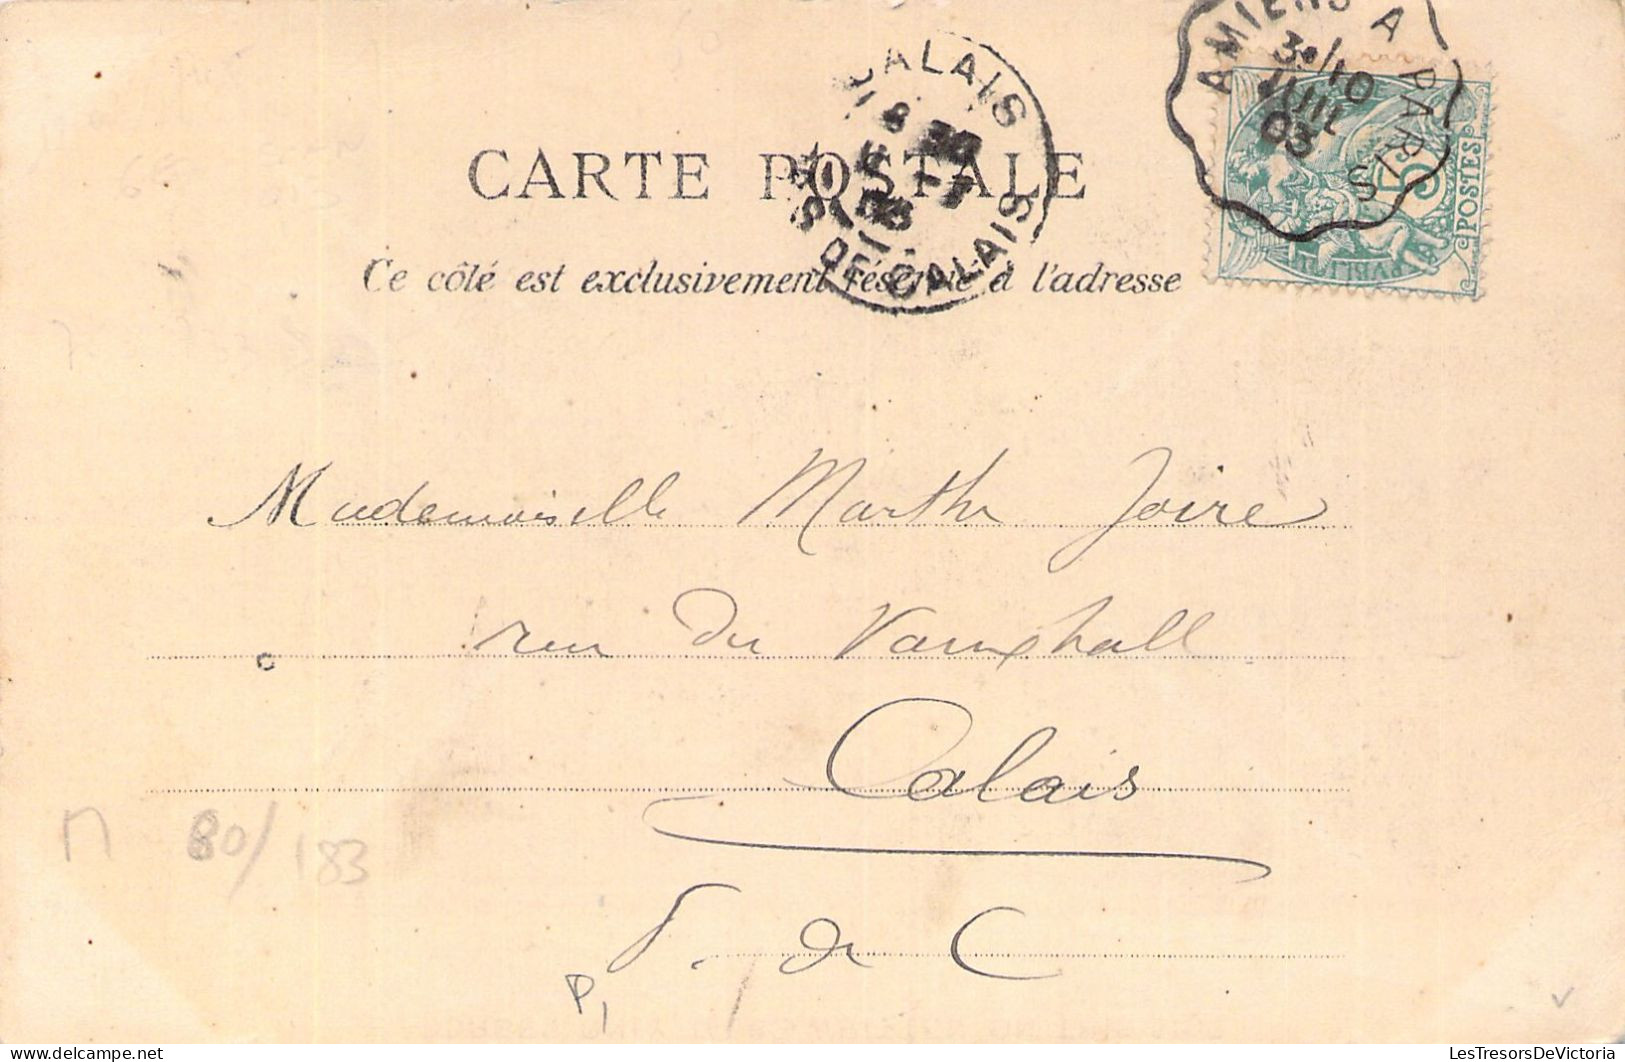 AMIENS A PARIS
30/10
JUIL
03
CALAIS
PAS DE CALAIS
5
POSTES
CARTE POSTALE
Ce côté est exclusivement réservé à l'adresse
Mademoiselle Marthe Joire
rue du Vauxhall
Calais
P. de C
П 80/183
P1
LesTresorsDeVictoria